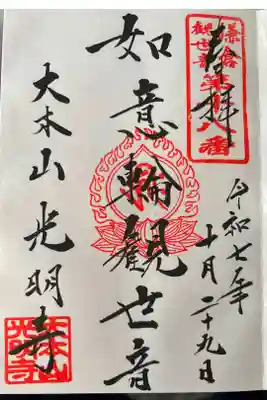 奉拝
鎌倉
観世音
第十八番
令和七年
十月二十九日
如意輪観世音
大本山光明寺
大本山
光明寺